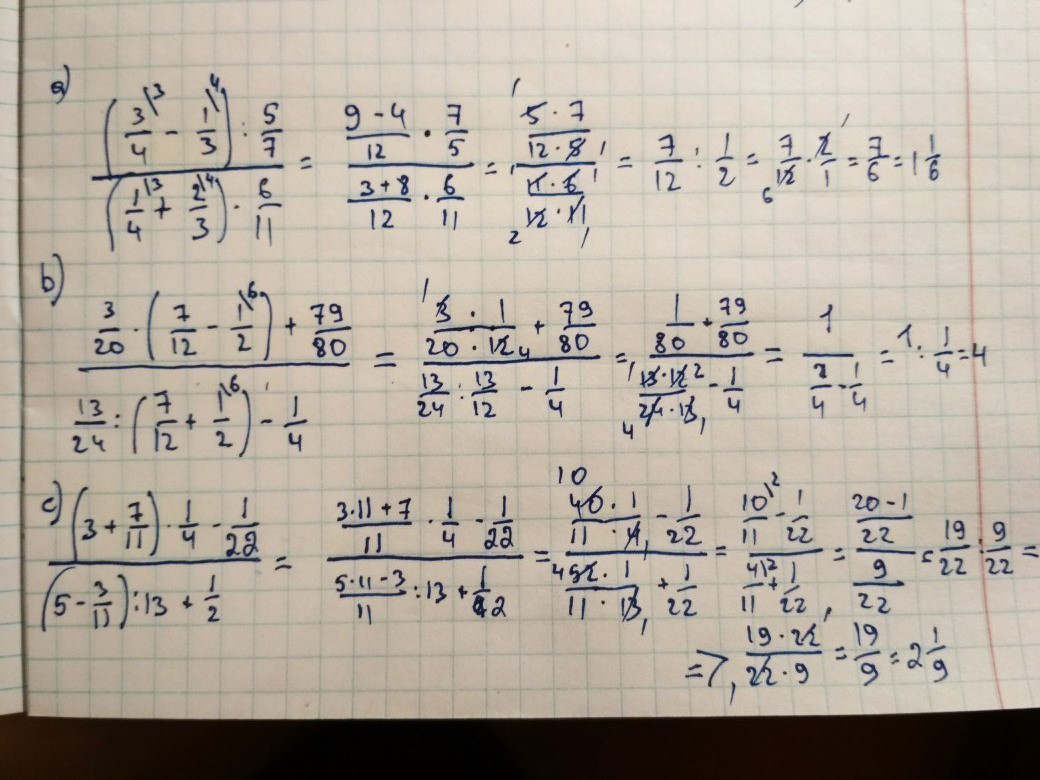 a) ((3/4)\3 - (1/3)\4) : 5/7 / ((1/4)\3 + (2/3)\4) · 6/11 = (9-4)/12 · 7/5 / (3+8)/12 · 6/11 = (5·7)/(12·5) / (11·6)/(12·11) = 7/12 : 1/2 = 7/12 · 2/1 = 7/6 = 1 1/6
b) 3/20 · (7/12 - (1/2)\6) + 79/80 / 13/24 : (7/12 + (1/2)\6) - 1/4 = (3·1)/(20·12) + 79/80 / 13/24 : 13/12 - 1/4 = 1/80 + 79/80 / (13·12)/(24·13) - 1/4 = 1 / 2/4 - 1/4 = 1 : 1/4 = 4
c) (3 + 7/11) · 1/4 - 1/22 / (5 - 3/11) : 13 + 1/2 = (3·11+7)/11 · 1/4 - 1/22 / (5·11-3)/11 : 13 + 1/22 = (40·1)/(11·4) - 1/22 / (52·1)/(11·13) + 1/22 = (10/11)\2 - 1/22 / (4/11)\2 + 1/22 = (20-1)/22 / 9/22 = 19/22 : 9/22 =
=> (19·22)/(22·9) = 19/9 = 2 1/9